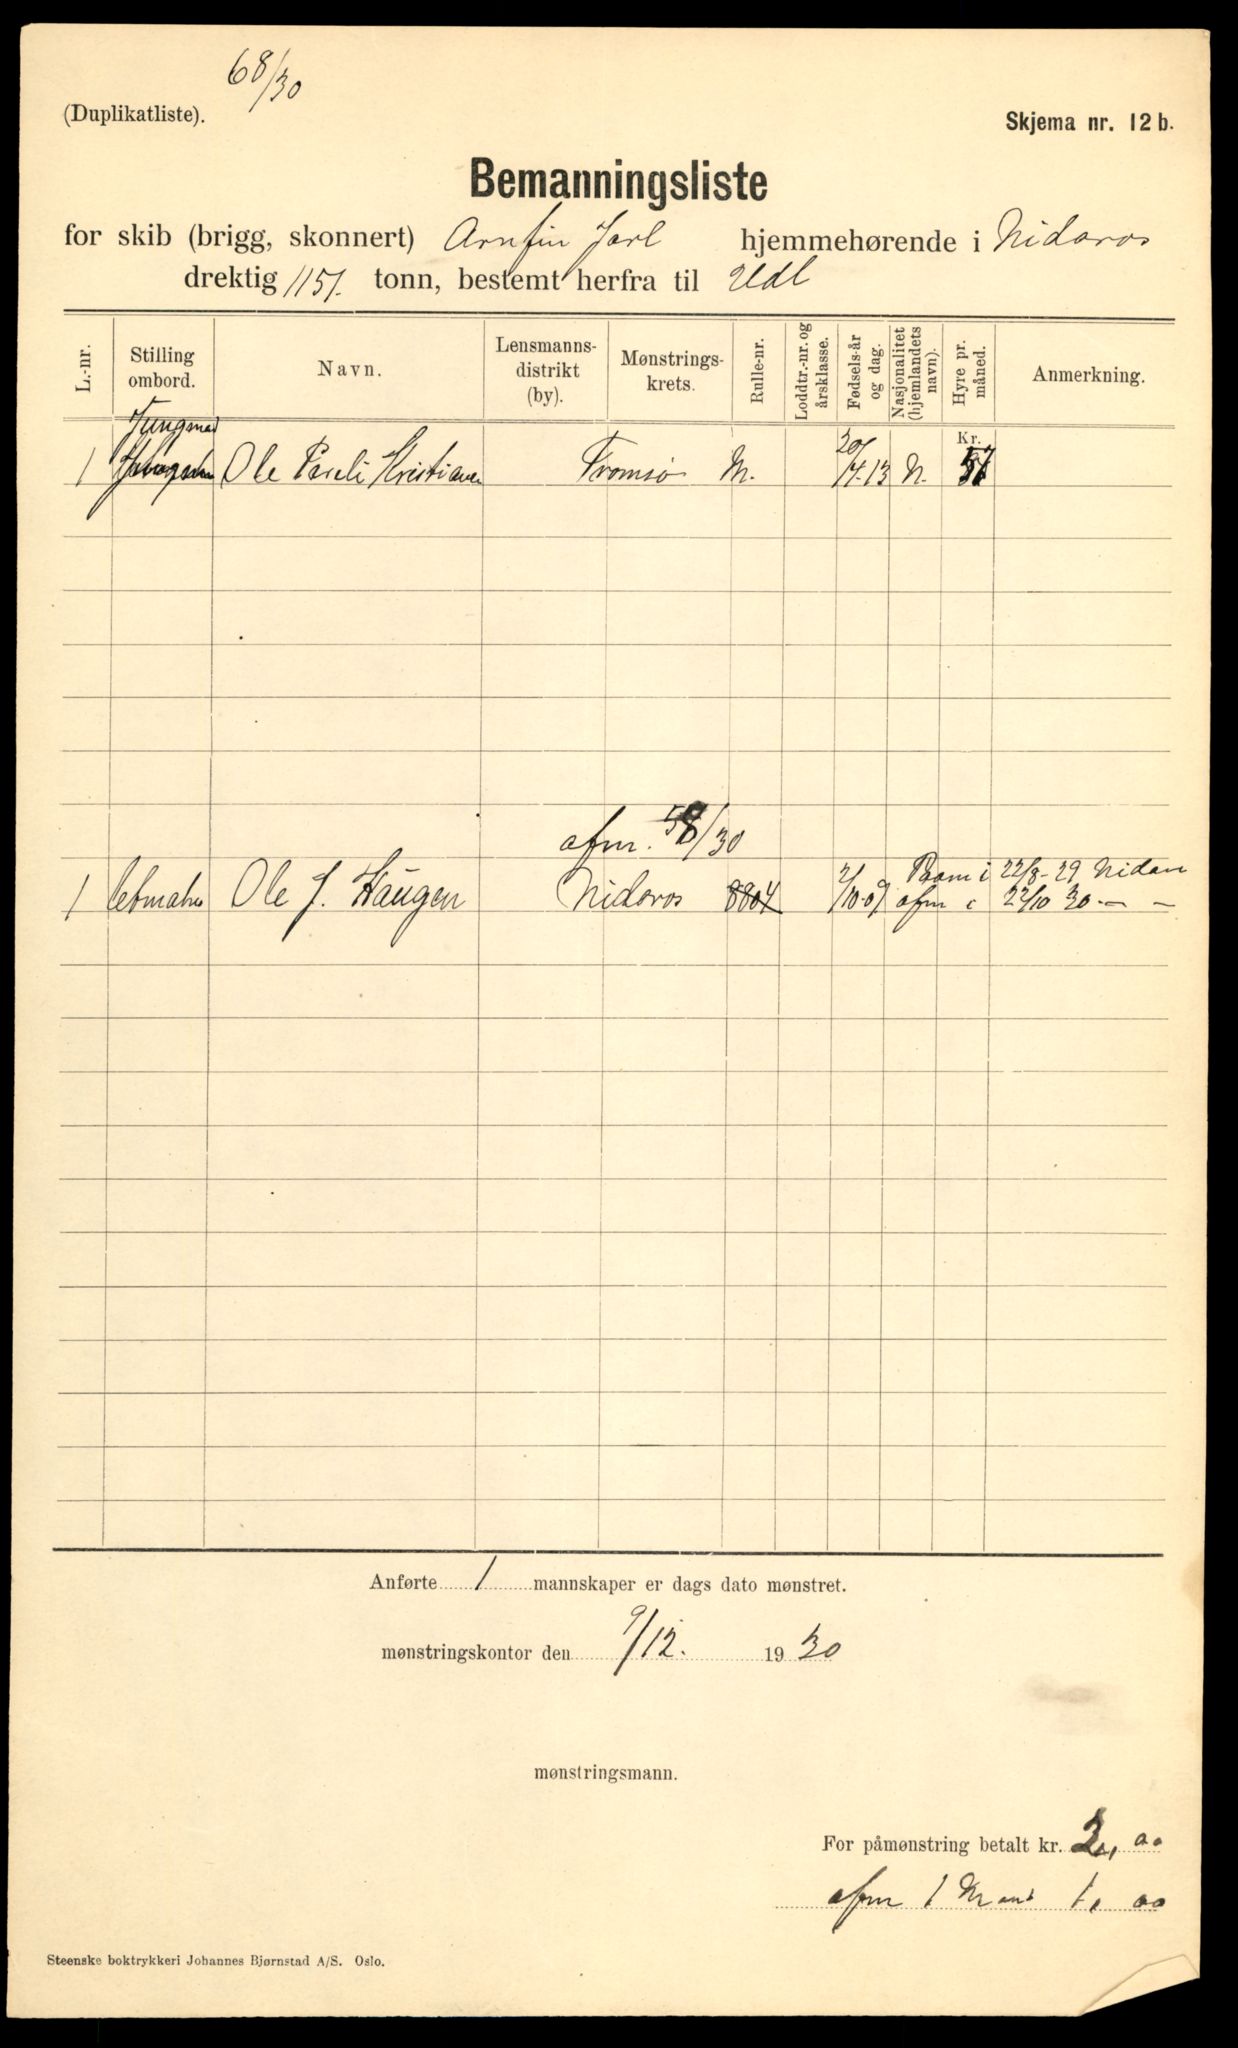 68/30
(Duplikatliste).
Skjema nr. 12 b.
Bemanningsliste
for skib (brigg, skonnert) Arnfin Jarl hjemmehørende i Nidaros
drektig 1151. tonn, bestemt herfra til Udl
L.-nr.
Stilling ombord.
Navn.
Lensmanns-distrikt (by).
Mønstrings-krets.
Rulle-nr.
Loddtr.-nr. og årsklasse.
Fødsels-år og dag.
Nasjonalitet (hjemlandets navn).
Hyre pr. måned.
Anmerkning.
Kr.
Jungmad
1 Ole Pareli Kristiansen Tromsø M. 20/4-13 N. 57
afm. 58/30
1 Letmatros Ole J. Haugen Nidaros 8804 2/10-09 Paam i 22/8-29 Nidaros
afm i 22/10 30 — —
Anførte 1 mannskaper er dags dato mønstret.
mønstringskontor den 9/12. 1930
mønstringsmann.
For påmønstring betalt kr. 2,00
afm 1 Mand 1,00
Steenske boktrykkeri Johannes Bjørnstad A/S. Oslo.